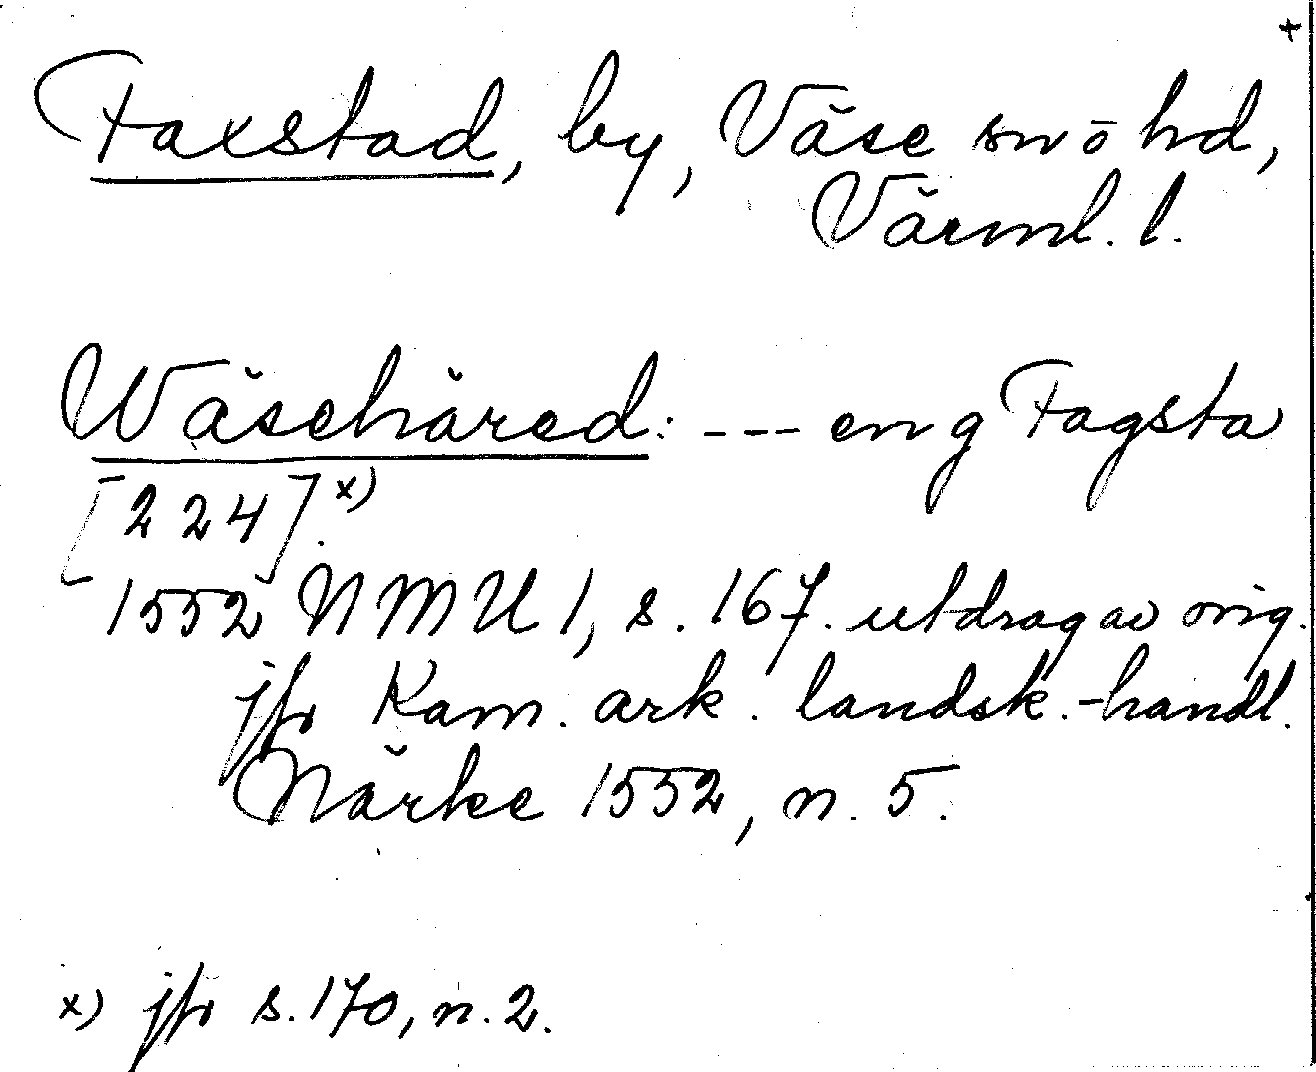 +
Faxstad, by, Väse sn o hd,
Värml. l.
Wäsehäred: --- en g Fagsta
[224].x)
1552 NMU 1, s. 167. utdrag av orig.
jfr Kam. ark. landsk.-handl.
Närke 1552, n. 5.
x) jfr s. 170, n. 2.